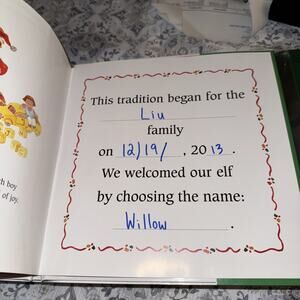 This tradition began for the
Liu
family
on 12/19/, 2013.
We welcomed our elf
by choosing the name:
Willow.
th boy
of joy.